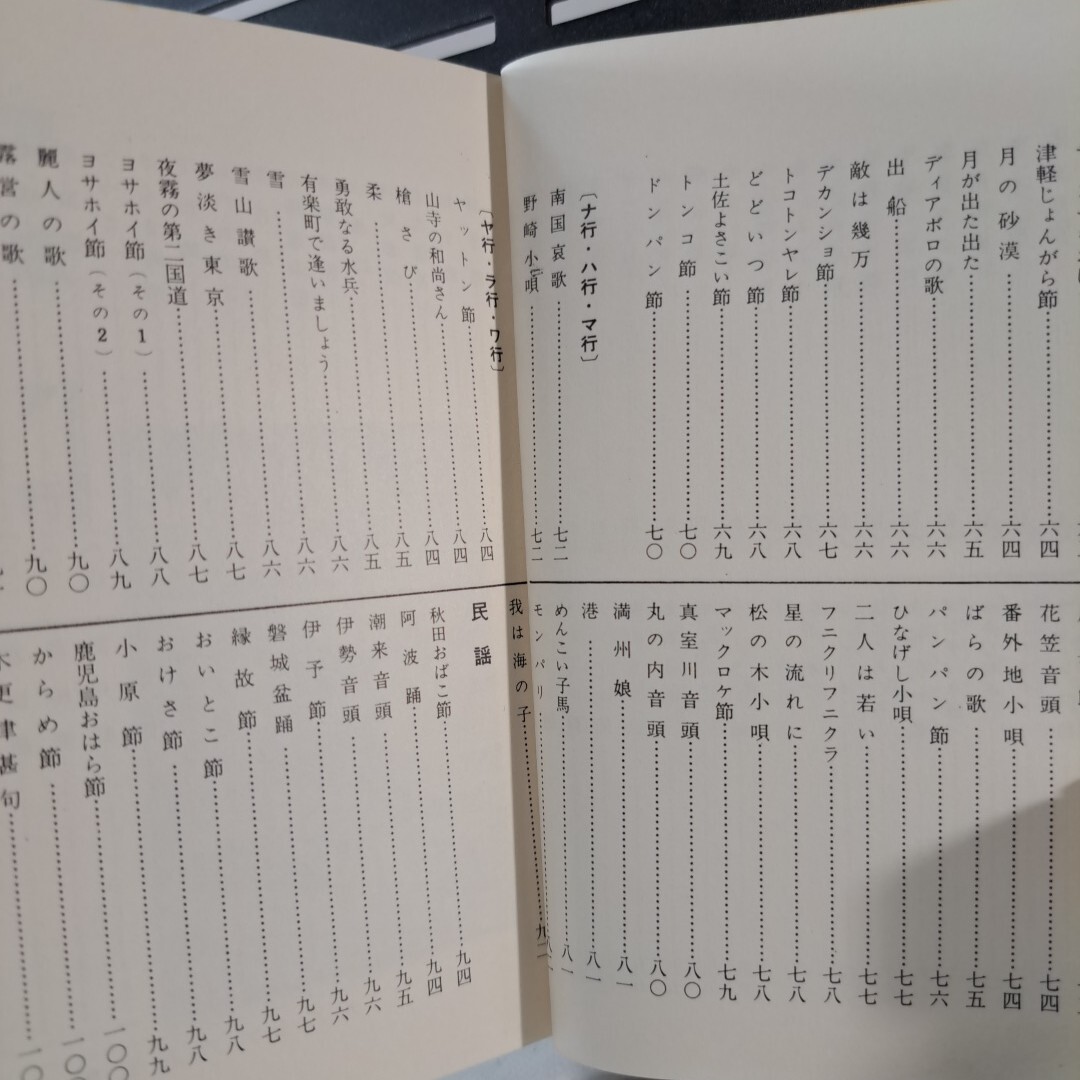 津軽じょんがら節……六四
月の砂漠……六四
月が出た出た……六五
ディアボロの歌……六六
出船……六六
敵は幾万……六六
デカンショ節……六七
トコトンヤレ節……六八
どどいつ節……六八
土佐よさこい節……六九
トンコ節……七〇
ドンパン節……七〇
〔ナ行・ハ行・マ行〕
南国哀歌……七二
野崎小唄……七二
花笠音頭……七四
番外地小唄……七四
ばらの歌……七五
パンパン節……七六
ひなげし小唄……七七
二人は若い……七七
フニクリフニクラ……七八
星の流れに……七八
松の木小唄……七八
マックロケ節……七九
真室川音頭……八〇
丸の内音頭……八〇
満州娘……八一
港……八一
めんこい子馬……八一
モンパリ
〔ヤ行・ラ行・ワ行〕
ヤットン節……八四
山寺の和尚さん……八四
槍さび……八四
柔……八五
勇敢なる水兵……八五
有楽町で逢いましょう……八六
雪……八六
雪山讃歌……八六
夢淡き東京……八七
夜霧の第二国道……八七
ヨサホイ節（その1）……八八
ヨサホイ節（その2）……八九
麗人の歌……九〇
露営の歌……九〇
我は海の子……九二
民謡
秋田おばこ節……九四
阿波踊……九四
潮来音頭……九五
伊勢音頭……九六
伊予節……九六
磐城盆踊……九七
縁故節……九七
おいとこ節……九八
おけさ節……九八
小原節……九九
鹿児島おはら節……一〇〇
からめ節……一〇〇
木更津甚句